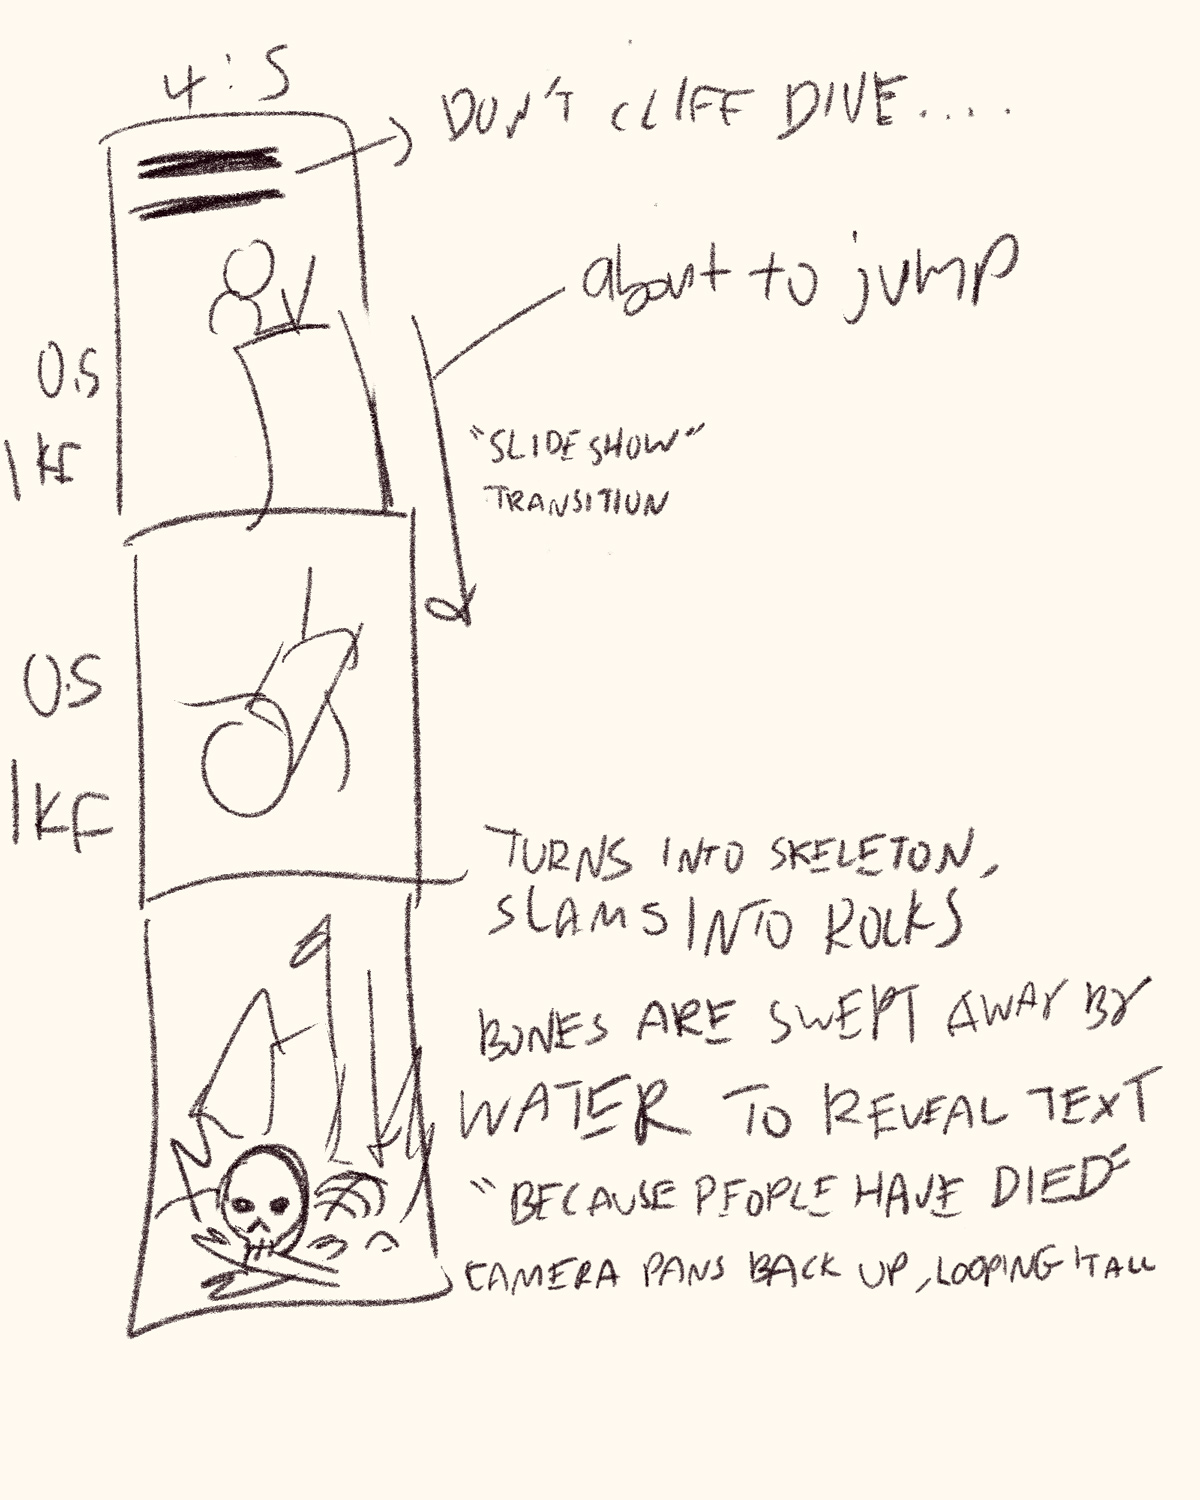 4:5
DON'T CLIFF DIVE....
about to jump
0.5
1 KF
"SLIDESHOW"
TRANSITION
0.5
1 KF
TURNS INTO SKELETON,
SLAMS INTO ROCKS
BONES ARE SWEPT AWAY BY
WATER TO REVEAL TEXT
"BECAUSE PEOPLE HAVE DIED"
CAMERA PANS BACK UP, LOOPING IT ALL